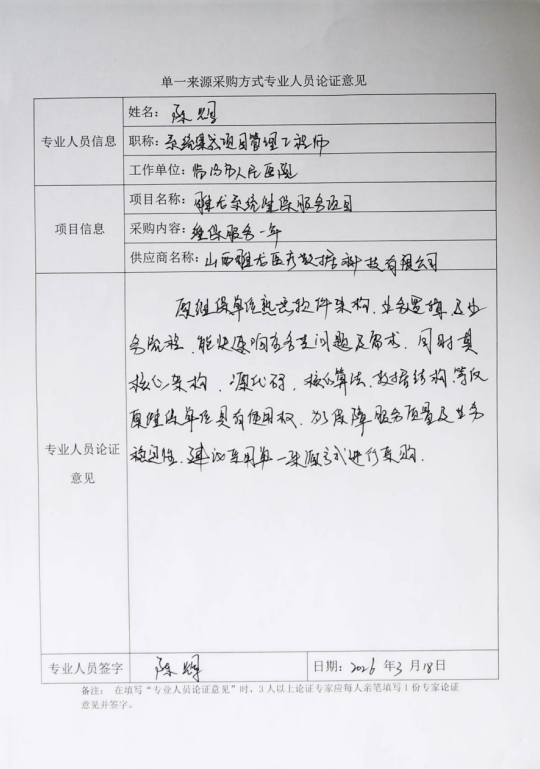 单一来源采购方式专业人员论证意见
专业人员信息
姓名：陈
职称：系统集成项目管理工程师
工作单位：临汾市人民医院
项目信息
项目名称：雅尤系统维保服务项目
采购内容：维保服务一年
供应商名称：山西雅尤医疗数据科技有限公司
专业人员论证
意见
原维保单位熟悉软件架构、业务逻辑及业
务流程，能快速响应各类问题及需求，同时其
核心架构、源代码、核心算法、数据结构等仅
原维保单位具有使用权，为保障服务质量及业务
稳定性，建议采用单一来源方式进行采购．
专业人员签字
陈
日期：2026年3月18日
备注：在填写“专业人员论证意见”时，3人以上论证专家应每人亲笔填写1份专家论证
意见并签字。